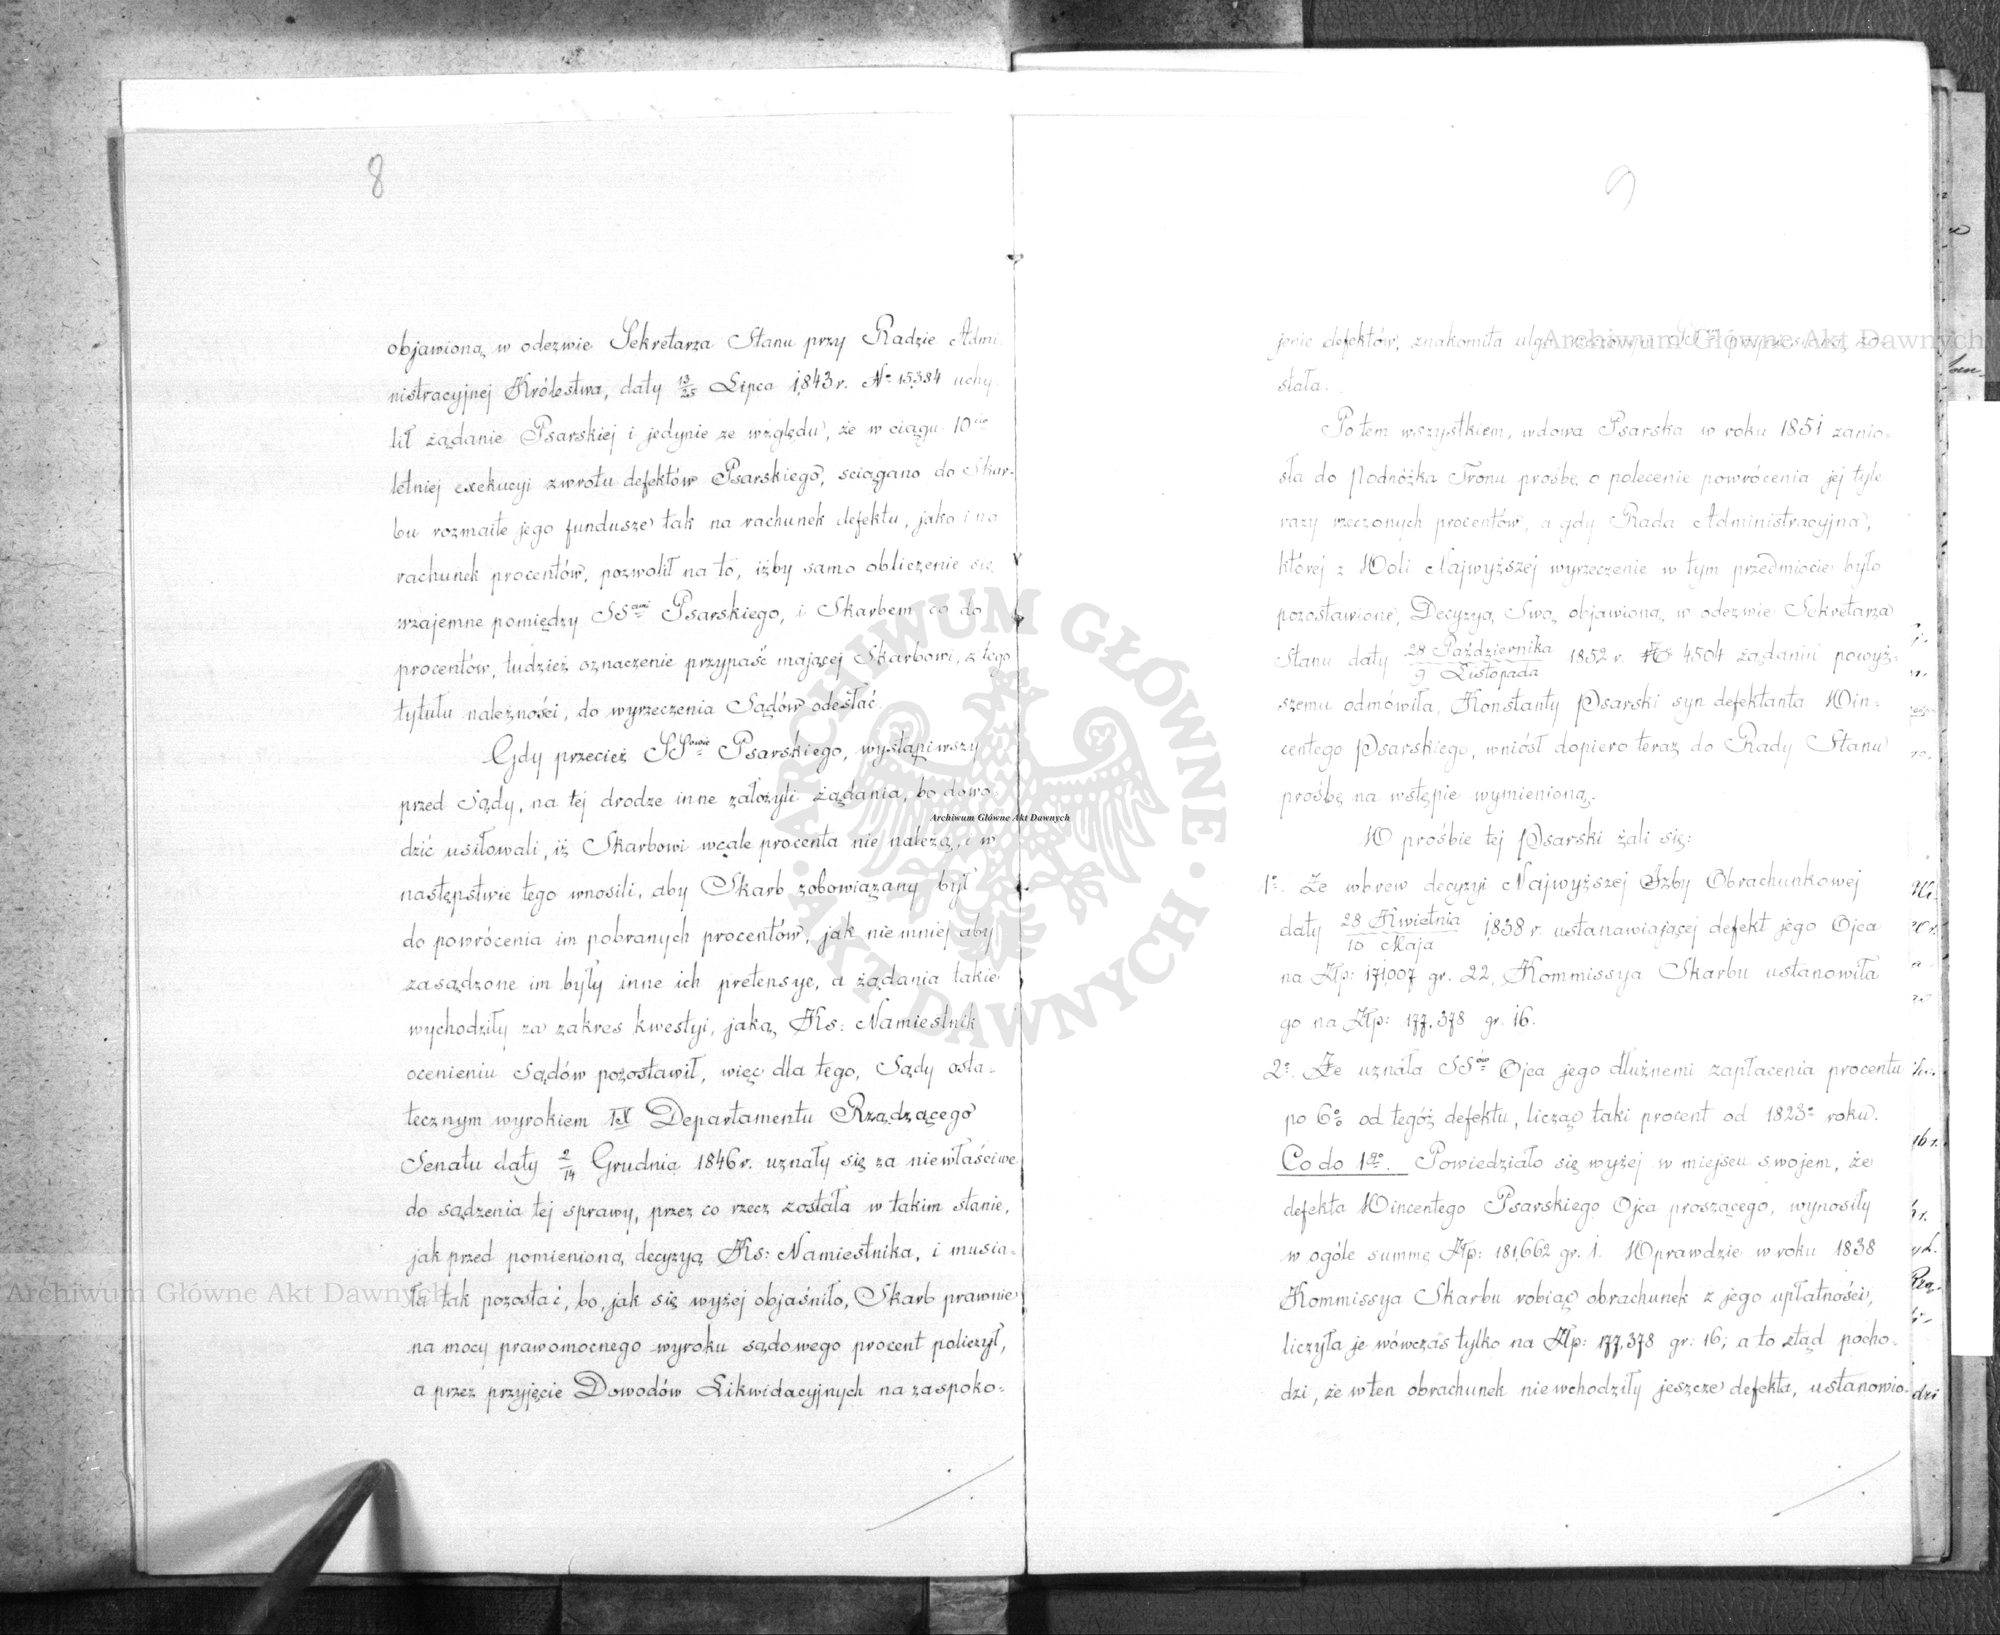 8
objawioną w odezwie Sekretarza Stanu przy Radzie Admi-
nistracyjnej Królestwa, daty 13/25 Lipca 1843 r. No 15,384 uchy-
lił żądanie Psarskiej i jedynie ze względu, że w ciągu 10cio
letniej exekucyi zwrotu defektów Psarskiego, sciągano do Skar-
bu rozmaite jego fundusze tak na rachunek defektu, jako i na
rachunek procentów, pozwolił na to, iżby samo obliczenie się
wzajemne pomiędzy SSami Psarskiego, i Skarbem co do
procentów, tudzież oznaczenie przypaść mającej Skarbowi, z tego
tytułu należności, do wyrzeczenia Sądów odesłać.
Gdy przecież SSowie Psarskiego, wystąpiwszy
przed Sądy, na tej drodze inne założyli żądania, bo dowo-
dzić usiłowali, iż Skarbowi wcale procenta nie należą, i w
następstwie tego wnosili, aby Skarb zobowiązany był
do powrócenia im pobranych procentów, jak niemniej aby
zasądzone im były inne ich pretensye, a żądania takie
wychodziły za zakres kwestyi, jaką Ks: Namiestnik
ocenieniu Sądów pozostawił, więc dla tego, Sądy osta-
tecznym wyrokiem IX Departamentu Rządzącego
Senatu daty 2/14 Grudnia 1846 r. uznały się za niewłaściwe
do sądzenia tej sprawy, przez co rzecz została w takim stanie,
jak przed pomienioną decyzyą Ks: Namiestnika, i musia-
ła tak pozostać, bo, jak się wyżej objaśniło, Skarb prawnie
na mocy prawomocnego wyroku sądowego procent policzył,
a przez przyjęcie Dowodów Likwidacyjnych na zaspoko-
9
jenie defektów, znakomita ulga
stała.
Potem wszystkiem, wdowa Psarska w roku 1851 zanio-
sła do Podnóżka Tronu prośbę o polecenie powrócenia jej tyle
razy rzeczonych procentów, a gdy Rada Administracyjna,
której z Woli Najwyższej wyrzeczenie w tym przedmiocie było
pozostawione, Decyzyą Swą objawioną w odezwie Sekretarza
Stanu daty 28 Października/9 Listopada 1852 r. No 4504 żądaniu powyż-
szemu odmówiła, Konstanty Psarski syn defektanta Win-
centego Psarskiego, wniósł dopiero teraz do Rady Stanu
prośbę na wstępie wymienioną.
W prośbie tej Psarski żali się:
1o. Że wbrew decyzyi Najwyższej Izby Obrachunkowej
daty 28 Kwietnia/10 Maja 1838 r. ustanawiającej defekt jego Ojca
na Złp: 171,007 gr. 22, Kommissya Skarbu ustanowiła
go na Złp: 177,378 gr. 16.
2o. Że uznała SSów Ojca jego dłużnemi zapłacenia procentu
po 6% od tegóż defektu, licząc taki procent od 1823o roku.
Co do 1go. Powiedziało się wyżej w miejscu swojem, że
defekta Wincentego Psarskiego Ojca proszącego, wynosiły
w ogóle summę Złp: 181,662 gr. 1. Wprawdzie w roku 1838
Kommissya Skarbu robiąc obrachunek z jego upłatności,
liczyła je wówczas tylko na Złp: 177,378 gr: 16; a to ztąd pocho-
dzi, że w ten obrachunek niewchodziły jeszcze defekta, ustanowio-
Archiwum Główne Akt Dawnych
Archiwum Główne Akt Dawnych
Archiwum Główne Akt Dawnych
ARCHIWUM GŁÓWNE · AKT DAWNYCH ·